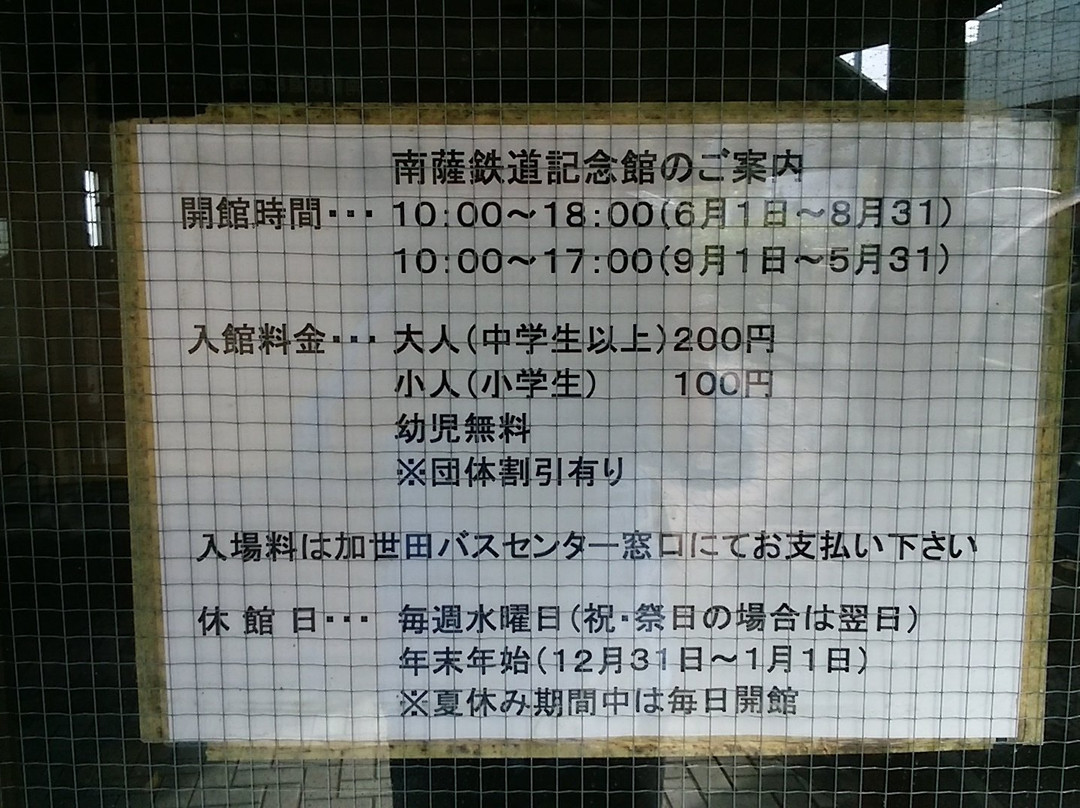 南薩鉄道記念館のご案内
開館時間･･･ 10:00～18:00(6月1日～8月31)
10:00～17:00(9月1日～5月31)
入館料金･･･ 大人(中学生以上)200円
小人(小学生) 100円
幼児無料
※団体割引有り
入場料は加世田バスセンター窓口にてお支払い下さい
休 館 日･･･ 毎週水曜日(祝･祭日の場合は翌日)
年末年始(12月31日～1月1日)
※夏休み期間中は毎日開館